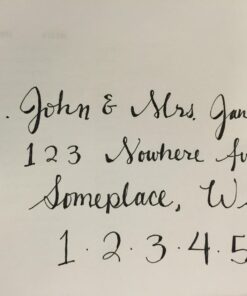 . John & Mrs. Jan
123 Nowhere Av
Someplace, W
1.2.3.4.5